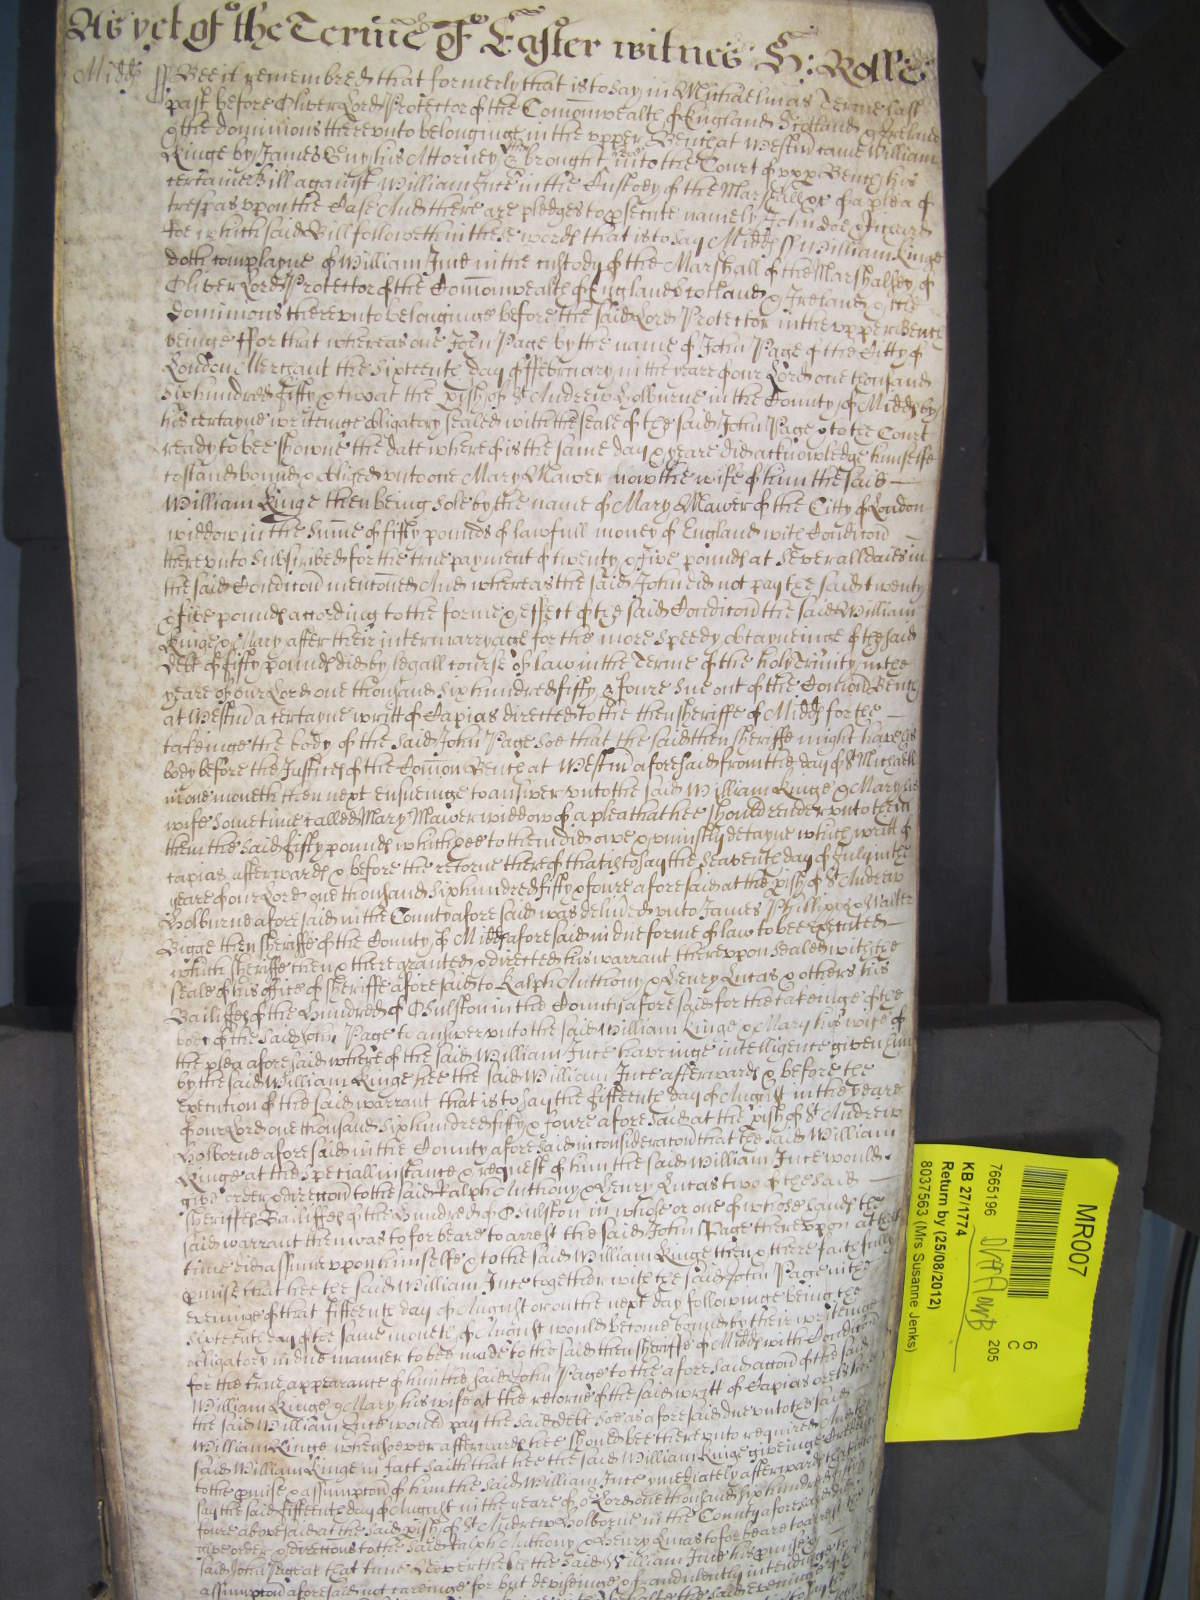 As yet of the Terme of Easter witnes H: Rolle
Midds ss Bee it remembred that formerly that is to say in Michaelmas Terme last
past before Oliver Lord Protector of the Comonwealth of England Scotland & Ireland
& the dominions therevnto belonginge in the vpper Bench at Westm came William
Kinge by James Guy his Attorney & brought into the Court of vpp Bench his
certaine Bill against William Ince in the Custody of the Marshall &c of a plea of
trespas vpon the Case And there are pledges to psecute namely John Doe & Richard
Roe which said Bill followeth in these words that is to say Midds ss William Kinge
doth complayne of William Ince in the custody of the Marshall of the Marshalsey of
Oliver Lord Protector of the Comonwealth of England Scotland & Ireland & the
Dominions therevnto belonginge before the said Lord Protector in the vpper Bench
beinge ffor that whereas one John Page by the name of John Page of the Citty of
London Merchant the Sixteenth day of ffebruary in the yeare of our Lord one thousand
Six hundred fifty & two at the pish of St Andrew Holburne in the County of Midds by
his certayne writeinge obligatory sealed with the seale of the said John Page & to the Court
ready to bee showne the date whereof is the same day & yeare did acknowledge himselfe
to stand bound & obliged vnto one Mary Mawer now the wife of him the said
William Kinge then being sole by the name of Mary Mawer of the Citty of London
widdow in the Sume of fifty pounds of lawfull money of England with Condicon
therevnto Subscribed for the true payment of twenty & five pounds at severall daies in
the said Condicon menconed And whereas the said John did not pay the said twenty
& five pounds according to the forme & effect of the said Condicon the said William
Kinge & Mary after their intermarryage for the more speedy obtayneinge of the said
debt of fifty pounds did by legall course of law in the Terme of the holy Trinity in the
yeare of our Lord one thousand Six hundred fifty & foure sue out of the Comon Bench
at Westm a certayne writt of Capias directed to the then sheriffe of Midds for the
takeinge the body of the said John Page Soe that the said then sheriffe might have his
body before the Justices of the Comon Bench at Westm aforesaid from the day of St Michaell
in one moneth then next ensueinge to answer vnto the said William Kinge & Mary his
wife sometime called Mary Mawer widdow of a plea that hee should render vnto them
the said fifty pounds which hee to them did owe & vniustly detayne which writt of
capias afterwards & before the retorne thereof that is to say the Seaventh day of July in the
yeare of our Lord one thousand Six hundred fifty & foure aforesaid at the pish of St Andrew
Holburne aforesaid in the County aforesaid was deliued vnto James Phillipps & Walter
Bigge then sheriffe of the County of Midds aforesaid in due forme of law to bee executed
which sheriffe then & there granted & directed his warrant therevpon sealed with the
seale of his office of sheriffe aforesaid to Ralph Anthony & Henry Lucas & others his
Bailiffes of the Hundred of Osulston in the County aforesaid for the takeinge of the
body of the said John Page to answer vnto the said William Kinge & Mary his wife of
the plea aforesaid whereof the said William Ince haveinge intelligence given him
by the said William Kinge hee the said William Ince afterwards & before the
execution of the said warrant that is to say the fifteenth day of August in the yeare
of our Lord one thousand Six hundred fifty & foure aforesaid at the pish of St Andrew
Holborne aforesaid in the County aforesaid in consideracon that the said William
Kinge at the speciall instance & request of him the said William Ince would
give order & direccon to the said Ralph Anthony & Henry Lucas two of the said
sheriffes Bailiffes of the Hundred of Osulston in whose or one of whose hands the
said warrant then was to forbeare to arrest the said John Page therevpon at that
time did assume vpon himselfe & to the said William Kinge then & there faithfully
pmise that hee the said William Ince together with the said John Page
eveninge of that fifteenth day of August or on the next day followinge being the
sixteenth day of the same moneth of August would become bound by their writeinge
obligatory in due manner to bee made to the said then sheriffe of Midds with Condicon
for the true appearance of him the said John Page to the aforesaid accon of the said
William Kinge & Mary his wife at the retorne of the said writt of Capias or else hee
the said William Ince would pay the said debt soe as aforesaid due vnto the said
William Kinge whensoever afterwards hee should bee therevnto required And the
said William Kinge in fact saith that hee the said William Kinge giveinge creditt
to the pmise & assumpcon of him the said William Ince ymediately afterwards that is to
say the said fifteenth day of August in the yeare of or Lord one thousand six hundred fifty
foure abovesaid at the said pish of St Andrew Holborne in the County aforesaid did
give order & direccons to the said Ralph Anthony & Henry Lucas to forbeare to arrest the
said John Page at that time Neverthelesse the said William Ince his pmise &
assumpcon aforesaid not cardinge for but deviseinge & fraudulently intendinge
MR007
6
C
205
7665196
KB 27/1774
Return by (25/08/2012)
8037563 (Mrs Susanne Jenks)